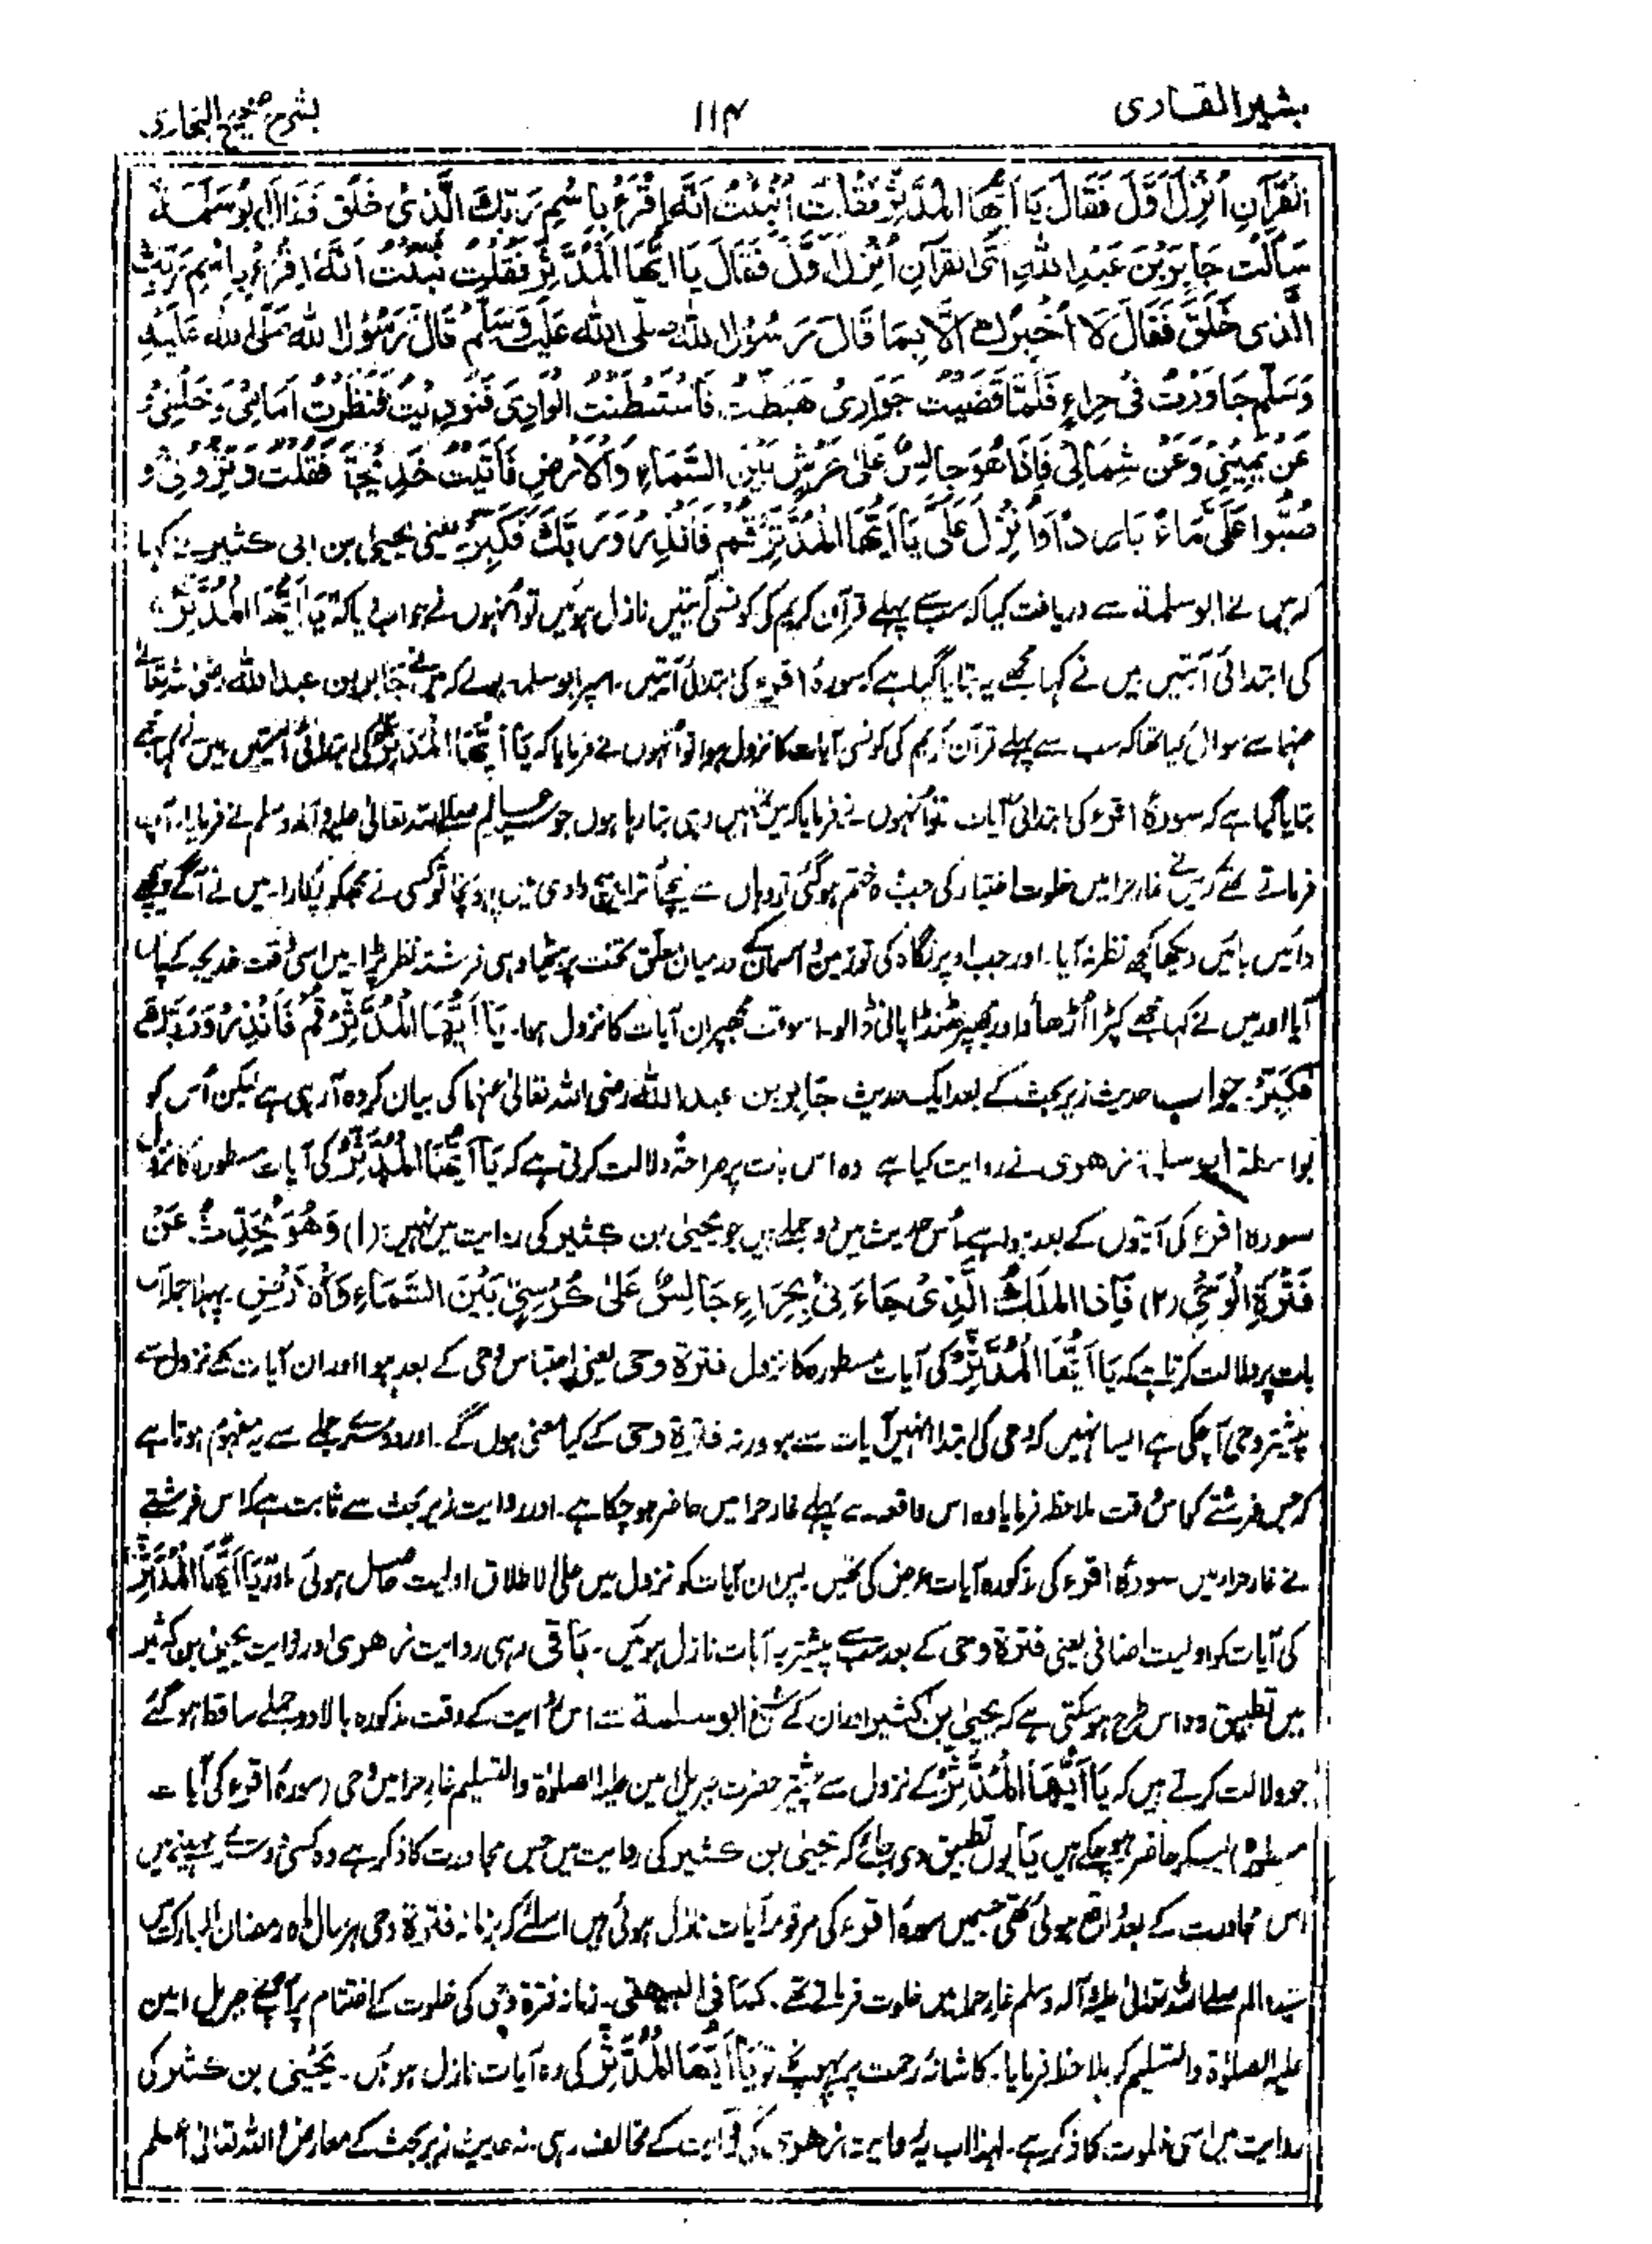 بشیر القاری
۱۱۴
بشرح صحیح البخاری
القُرآنِ اُنْزِلَ اَوَّلَ فَقَالَ یَا اَیُّهَا الْمُدَّثِّرُ فَقُلْتُ اُنْبِئْتُ اَنَّهٗ اِقْرَءْ بِاسْمِ رَبِّكَ الَّذِیْ خَلَقَ فَقَالَ اَبُوْسَلَمَةَ
سَاَلْتُ جَابِرَ بْنَ عَبْدِ اللهِ اَیُّ القرآنِ اُنْزِلَ اَوَّلَ فَقَالَ یَا اَیُّهَا الْمُدَّثِّرُ فَقُلْتُ نُبِّئْتُ اَنَّهٗ اِقْرَءْ بِاسْمِ رَبِّكَ
الَّذِی خَلَقَ فَقَالَ لَا اُخْبِرُكَ اِلَّا بِمَا قَالَ رَسُوْلُ اللهِ صلّی الله عَلَیْهِ وَسَلَّمَ قَالَ رَسُوْلُ اللهِ صَلَّی اللهُ عَلَیْهِ
وَسَلَّمَ جَاوَرْتُ فِیْ حِرَاءٍ فَلَمَّا قَضَیْتُ جِوَارِیْ هَبَطْتُ فَاسْتَبْطَنْتُ الْوَادِیَ فَنُوْدِیْتُ فَنَظَرْتُ اَمَامِیْ وَخَلْفِیْ وَ
عَنْ یَمِیْنِیْ وَعَنْ شِمَالِیْ فَاِذَا هُوَ جَالِسٌ عَلٰی عَرْشٍ بَیْنَ السَّمَاءِ وَالْاَرْضِ فَاَتَیْتُ خَدِیْجَةَ فَقُلْتُ دَثِّرُوْنِیْ وَ
صُبُّوْا عَلَیَّ مَاءً بَارِدًا وَاُنْزِلَ عَلَیَّ یَا اَیُّهَا الْمُدَّثِّرُ قُمْ فَاَنْذِرْ وَرَبَّكَ فَكَبِّرْ یعنی یحییٰ بن ابی کثیر نے کہا
کہ میں نے ابو سلمة سے دریافت کیا کہ سب سے پہلے قرآن کریم کی کونسی آیتیں نازل ہوئیں تو انہوں نے جواب دیا کہ یَا اَیُّهَا الْمُدَّثِّرُ
کی ابتدائی آیتیں میں نے کہا مجھے یہ بتایا گیا ہے کہ سورۂ اقرء کی ابتدائی آیتیں۔ اسپر ابو سلمہ بولے کہ میں نے جابر بن عبد الله رضی اللہ تعالیٰ
عنہما سے سوال کیا تھا کہ سب سے پہلے قرآن کریم کی کونسی آیات کا نزول ہوا تو انہوں نے فرمایا کہ یَا اَیُّهَا الْمُدَّثِّرُ کی ابتدائی آیتیں میں نے کہا مجھے
بتایا گیا ہے کہ سورۂ اقرء کی ابتدائی آیات تو انہوں نے فرمایا کہ میں تمہیں وہی بتا رہا ہوں جو سید عالم صلی اللہ تعالیٰ علیہ وآلہ وسلم نے فرمایا۔ آپ
فرماتے تھے کہ میں نے غار حرا میں خلوت اختیار کی جب وہ ختم ہو گئی تو وہاں سے نیچے اترا بیچ وادی میں پہونچا تو کسی نے مجھکو پکارا۔ میں نے آگے پیچھے
دائیں بائیں دیکھا کچھ نظر نہ آیا۔ اور جب اوپر نگاہ کی تو زمین و آسمان کے درمیان معلق تخت پر بیٹھا وہی فرشتہ نظر پڑا۔ میں اسی وقت خدیجہ کے پاس
آیا اور میں نے کہا مجھے کپڑا اُڑھاؤ اور مجھپر ٹھنڈا پانی ڈالو۔ اسوقت مجھپر ان آیات کا نزول ہوا۔ یَا اَیُّهَا الْمُدَّثِّرُ قُمْ فَاَنْذِرْ وَرَبَّكَ
فَكَبِّرْ۔ جواب حدیث زیر بحث کے بعد ایک حدیث جابر بن عبد الله رضی اللہ تعالیٰ عنہما کی بیان کردہ آ رہی ہے لیکن اُس کو
بواسطۂ ابو سلمة زهری نے روایت کیا ہے وہ اس بات پر صراحةً دلالت کرتی ہے کہ یَا اَیُّهَا الْمُدَّثِّرُ کی آیات مسطورہ کا نزول
سورہ اقرء کی آیتوں کے بعد ہوا ہے۔ اُس حدیث میں دو جملے ہیں جو یحییٰ بن کثیر کی روایت میں نہیں: (۱) وَهُوَ یُحَدِّثُ عَنْ
فَتْرَةِ الْوَحْیِ (۲) فَاِذَا الْمَلَكُ الَّذِیْ جَاءَنِیْ بِحِرَاءٍ جَالِسٌ عَلٰی كُرْسِیٍّ بَیْنَ السَّمَاءِ وَالْاَرْضِ۔ پہلا جملہ اس
بات پر دلالت کرتا ہے کہ یَا اَیُّهَا الْمُدَّثِّرُ کی آیات مسطورہ کا نزول فترة وحی یعنی احتباس وحی کے بعد ہوا اور ان آیات کے نزول سے
پیشتر وحی آ چکی ہے ایسا نہیں کہ وحی کی ابتدا انہیں آیات سے ہو ورنہ فترة وحی کے کیا معنی ہوں گے۔ اور دوسرے جملے سے یہ مفہوم ہوتا ہے
کہ جس فرشتے کو اس وقت ملاحظہ فرمایا وہ اس واقعہ سے پہلے غار حرا میں حاضر ہو چکا ہے۔ اور روایت زیر بحث سے ثابت ہے کہ اس فرشتے
نے غار حرا میں سورۂ اقرء کی مذکورہ آیات عرض کی تھیں پس ان آیات کو نزول میں علی الاطلاق اولیت حاصل ہوئی اور یَا اَیُّهَا الْمُدَّثِّرُ
کی آیات کو اولیت اضافی یعنی فترة وحی کے بعد سب سے پیشتر یہ آیات نازل ہوئیں۔ باقی رہی روایت زهری اور روایت یحییٰ بن کثیر
میں تطبیق وہ اس طرح ہو سکتی ہے کہ یحییٰ بن کثیر اور ان کے شیخ ابو سلمة سے اس روایت کے وقت مذکورہ بالا دو جملے ساقط ہو گئے
جو دلالت کرتے ہیں کہ یَا اَیُّهَا الْمُدَّثِّرُ کے نزول سے پیشتر حضرت جبریل امین علیہ الصلوٰۃ والتسلیم غار حرا میں وحی (سورۂ اقرء کی آیات
مسطورہ) لیکر حاضر ہو چکے ہیں یا یوں تطبیق دی جائے کہ یحییٰ بن کثیر کی روایت میں جس مجاورت کا ذکر ہے وہ کسی دوسرے مہینے میں
اس مجاورت کے بعد واقع ہوئی تھی جسمیں سورۂ اقرء کی مرقومہ آیات نازل ہوئی ہیں اسلئے کہ بزمانہ فترة وحی ہر سال ماہ رمضان المبارک میں
سید عالم صلی اللہ تعالیٰ علیہ وآلہ وسلم غار حرا میں خلوت فرماتے تھے۔ كما فی البیهقی۔ زمانہ فترة وحی کی خلوت کے اختتام پر آپ نے جبریل امین
علیہ الصلوٰۃ والتسلیم کو ملاحظہ فرمایا۔ کاشانۂ رحمت پر پہونچے تو یَا اَیُّهَا الْمُدَّثِّرُ کی وہ آیات نازل ہوئیں۔ یحییٰ بن کثیر کی
روایت میں اسی خلوت کا ذکر ہے۔ لہذا اب یہ روایت زهری کی روایت کے مخالف رہی۔ نہ حدیث زیر بحث کے معارض واللہ تعالیٰ اعلم